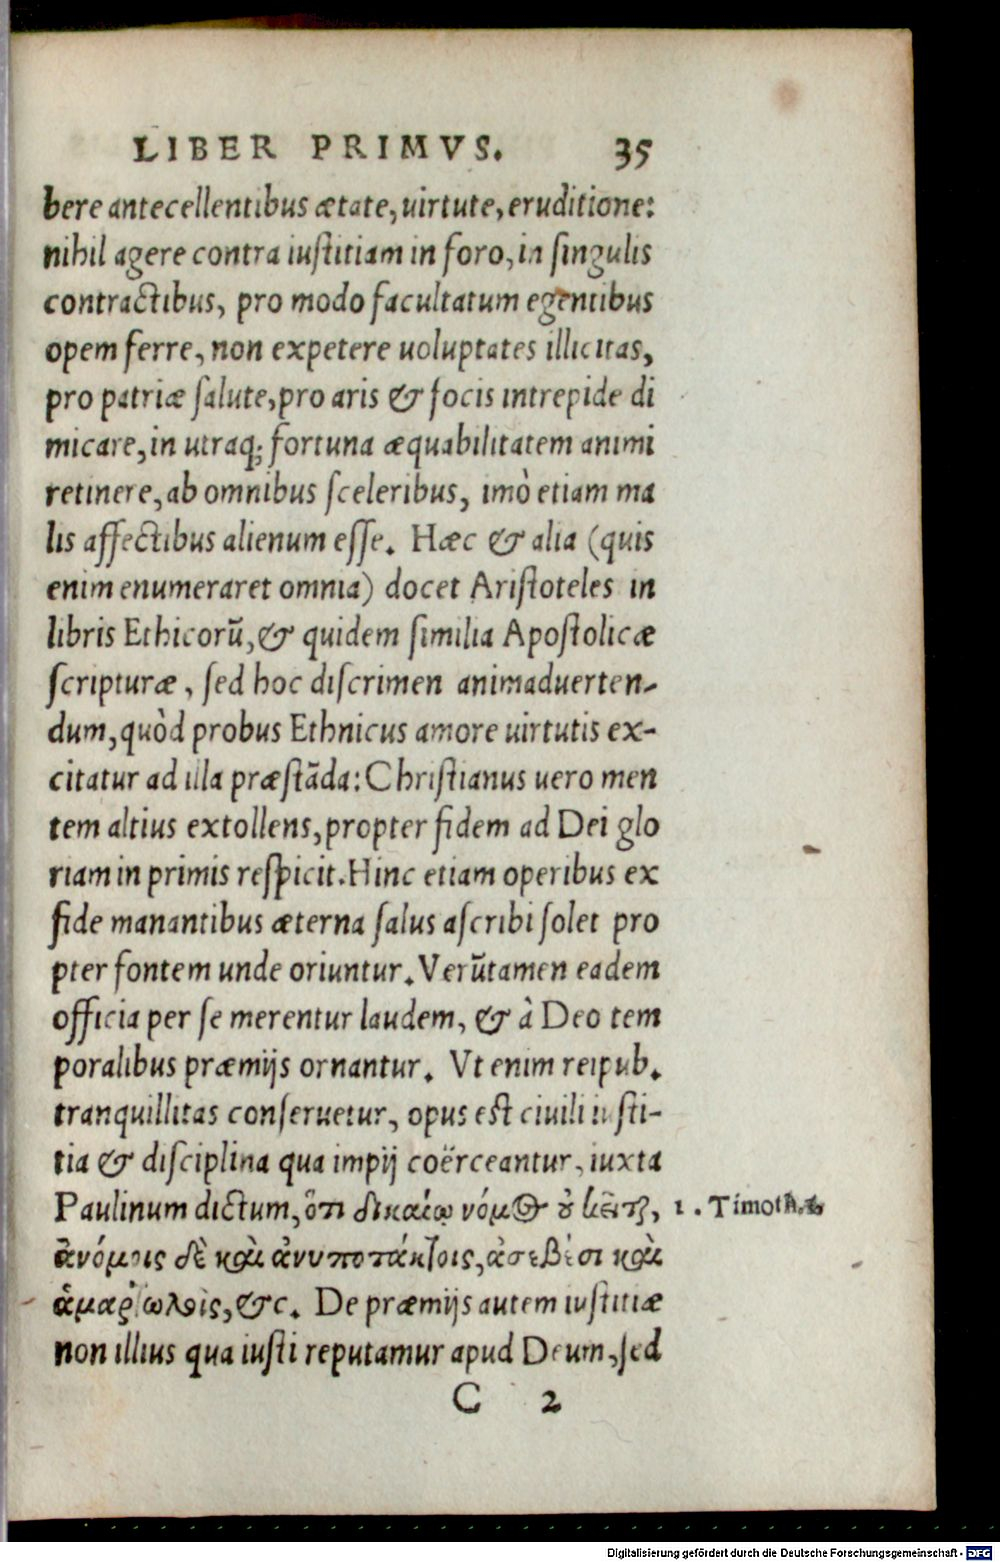 LIBER PRIMVS. 35
bere antecellentibus ætate, uirtute, eruditione:
nihil agere contra iuſtitiam in foro, in ſingulis
contractibus, pro modo facultatum egentibus
opem ferre, non expetere uoluptates illicitas,
pro patriæ ſalute, pro aris & focis intrepide di
micare, in utraq; fortuna æquabilitatem animi
retinere, ab omnibus ſceleribus, imò etiam ma
lis affectibus alienum eſſe. Hæc & alia (quis
enim enumeraret omnia) docet Ariſtoteles in
libris Ethicorũ, & quidem ſimilia Apoſtolicæ
ſcripturæ, ſed hoc diſcrimen animaduerten-
dum, quòd probus Ethnicus amore uirtutis ex-
citatur ad illa præſtãda: Chriſtianus uero men
tem altius extollens, propter fidem ad Dei glo
riam in primis reſpicit. Hinc etiam operibus ex
fide manantibus æterna ſalus aſcribi ſolet pro
pter fontem unde oriuntur. Verũtamen eadem
officia per ſe merentur laudem, & à Deo tem
poralibus præmijs ornantur. Vt enim reipub.
tranquillitas conſeruetur, opus eſt ciuili iuſti-
tia & diſciplina qua impij coërceantur, iuxta
Paulinum dictum, ὅτι δικαίῳ νόμος ȣ̓ κεῖται, 1. Timoth.
ἀνόμοις δὲ καὶ ἀνυποτάκτοις, ἀσεβέσι καὶ
ἁμαρτωλοῖς, &c. De præmijs autem iuſtitiæ
non illius qua iuſti reputamur apud Deum, ſed
C 2
Digitalisierung gefördert durch die Deutsche Forschungsgemeinschaft - DFG